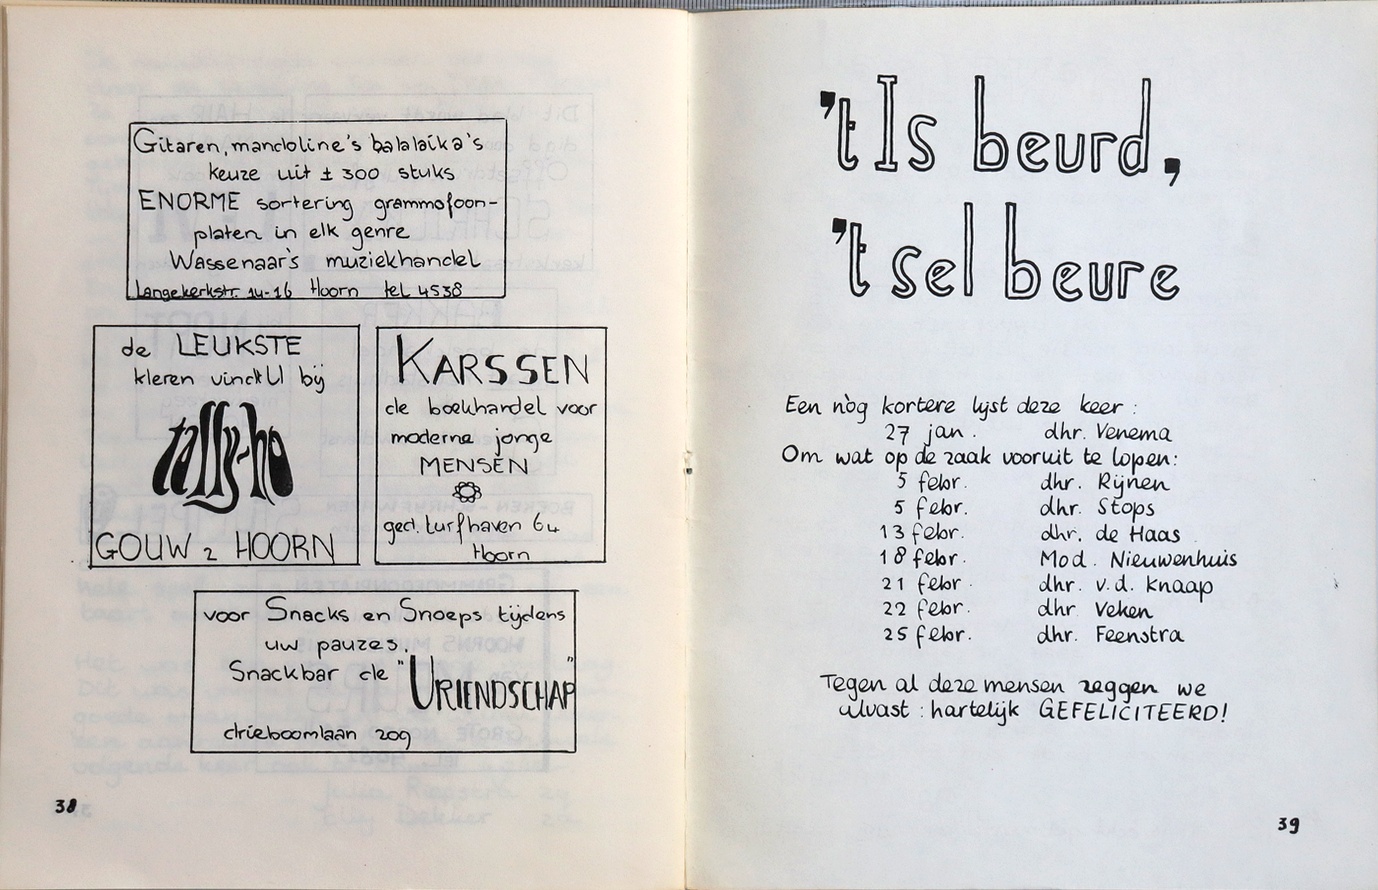 Gitaren, mandoline's balalaika's
keuze uit ± 300 stuks
ENORME sortering grammofoon-
platen in elk genre
Wassenaar's muziekhandel
Langekerkstr. 14-16 Hoorn tel 4538
de LEUKSTE
kleren vindt U bij
tally-ho
GOUW 2 HOORN
KARSSEN
de boekhandel voor
moderne jonge
MENSEN
ged. turfhaven 64
Hoorn
voor Snacks en Snoeps tijdens
uw pauzes.
Snackbar de "VRIENDSCHAP"
drieboomlaan 209
38
't Is beurd,
't sel beure
Een nòg kortere lijst deze keer :
27 jan. dhr. Venema
Om wat op de zaak vooruit te lopen:
5 febr. dhr. Rijnen
5 febr. dhr. Stops
13 febr. dhr. de Haas
18 febr. Mad. Nieuwenhuis
21 febr. dhr. v.d. Knaap
22 febr. dhr. Veken
25 febr. dhr. Feenstra
Tegen al deze mensen zeggen we
alvast : hartelijk GEFELICITEERD!
39